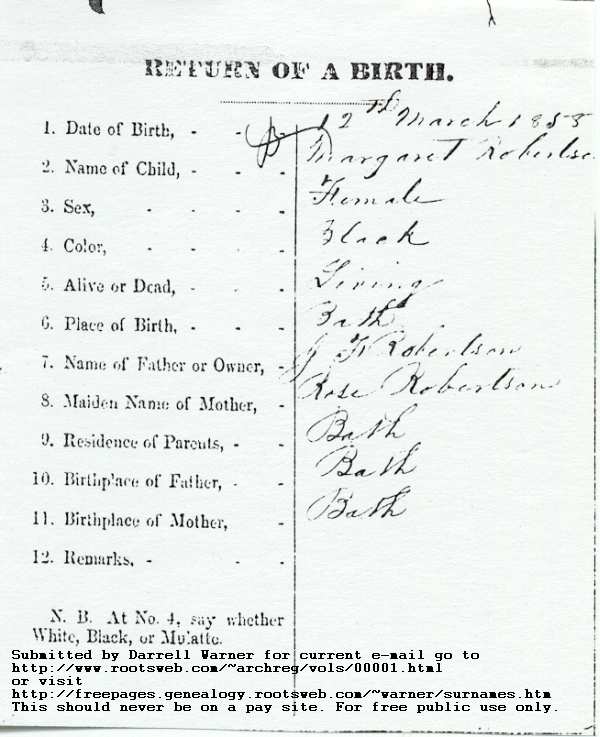 RETURN OF A BIRTH.
1. Date of Birth, - - - 12th March 1858
2. Name of Child, - - - Margaret Robertso
3. Sex, - - - - Female
4. Color, - - - - Black
5. Alive or Dead, - - - Living
6. Place of Birth, - - - Bath
7. Name of Father or Owner, - J F Robertson
8. Maiden Name of Mother, - Rose Robertson
9. Residence of Parents, - - Bath
10. Birthplace of Father, - - Bath
11. Birthplace of Mother, - Bath
12. Remarks, - - -
N. B. At No. 4, say whether
White, Black, or Mulatto.
Submitted by Darrell Warner for current e-mail go to
http://www.rootsweb.com/~archreg/vols/00001.html
or visit
http://freepages.genealogy.rootsweb.com/~warner/surnames.htm
This should never be on a pay site. For free public use only.